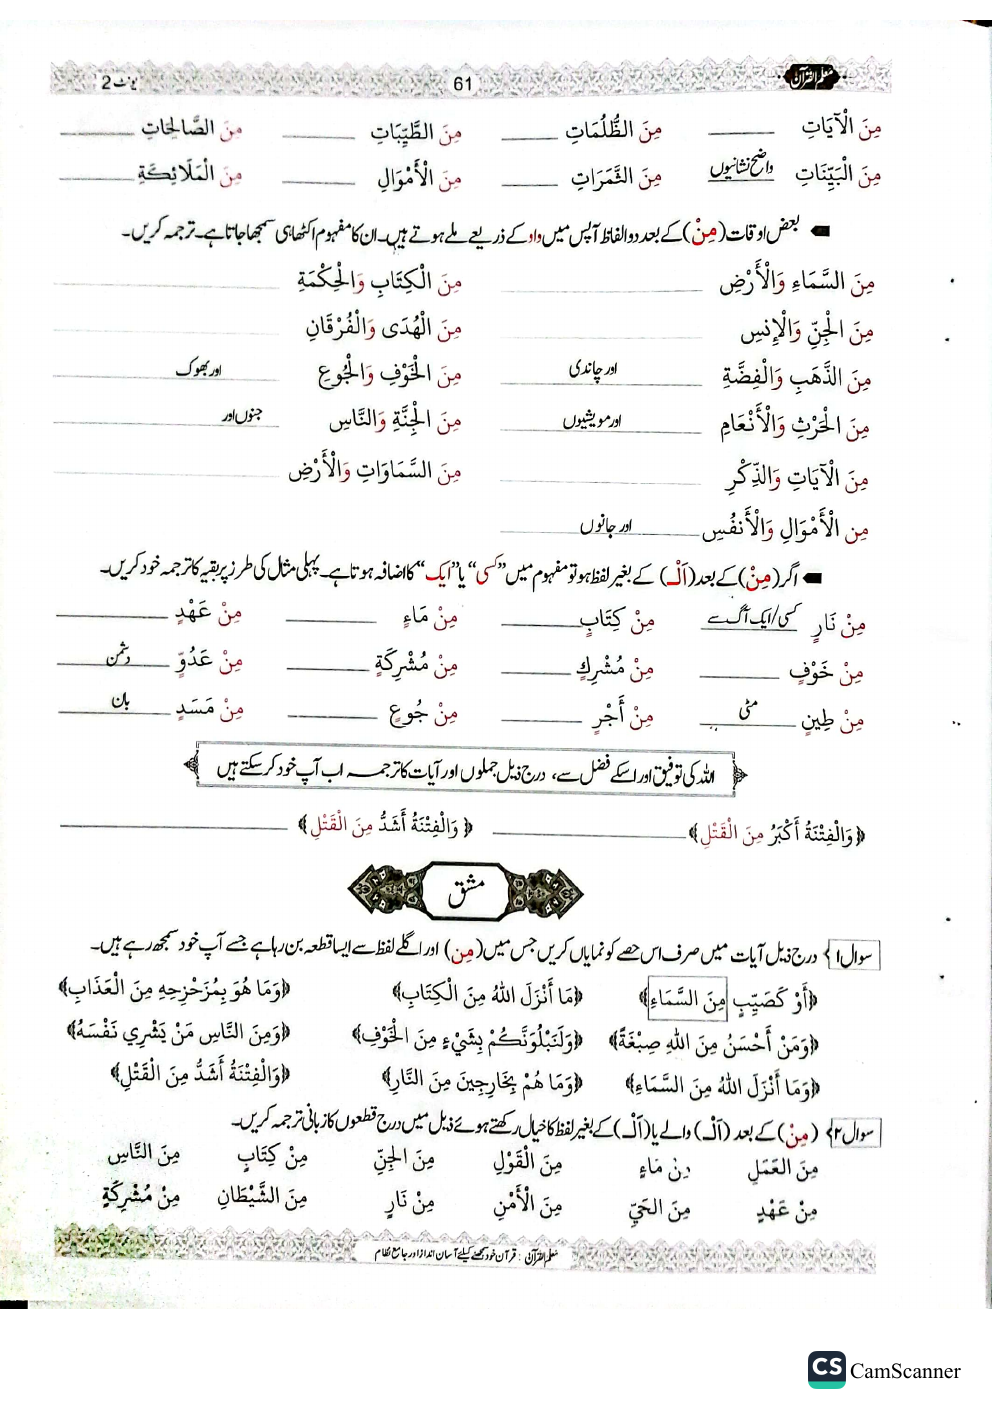 معلم القرآن 61 یونٹ 2
مِنَ الْآيَاتِ ________ مِنَ الظُّلُمَاتِ ________ مِنَ الطَّيِّبَاتِ ________ مِنَ الصَّالِحَاتِ ________
مِنَ الْبَيِّنَاتِ واضح نشانیوں مِنَ الثَّمَرَاتِ ________ مِنَ الْأَمْوَالِ ________ مِنَ الْمَلَائِكَةِ ________
بعض اوقات (مِنْ) کے بعد دو الفاظ آپس میں واو کے ذریعے ملے ہوتے ہیں۔ ان کا مفہوم اکٹھا ہی سمجھا جاتا ہے۔ ترجمہ کریں۔
مِنَ السَّمَاءِ وَالْأَرْضِ ________ مِنَ الْكِتَابِ وَالْحِكْمَةِ ________
مِنَ الْجِنِّ وَالْإِنسِ ________ مِنَ الْهُدَى وَالْفُرْقَانِ ________
مِنَ الذَّهَبِ وَالْفِضَّةِ اور چاندی مِنَ الْخَوْفِ وَالْجُوعِ اور بھوک
مِنَ الْحَرْثِ وَالْأَنْعَامِ اور مویشیوں مِنَ الْجِنَّةِ وَالنَّاسِ جنوں اور
مِنَ الْآيَاتِ وَالذِّكْرِ ________ مِنَ السَّمَاوَاتِ وَالْأَرْضِ ________
مِن الْأَمْوَالِ وَالْأَنفُسِ اور جانوں
اگر (مِنْ) کے بعد (اَلْـ) کے بغیر لفظ ہو تو مفہوم میں ”کسی“ یا ”ایک“ کا اضافہ ہوتا ہے۔ پہلی مثال کی طرز پر بقیہ کا ترجمہ خود کریں۔
مِنْ نَارٍ کسی/ایک آگ سے مِنْ كِتَابٍ ________ مِنْ مَاءٍ ________ مِنْ عَهْدٍ ________
مِنْ خَوْفٍ ________ مِنْ مُشْرِكٍ ________ مِنْ مُشْرِكَةٍ ________ مِنْ عَدُوٍّ دشمن
مِنْ طِينٍ مٹی مِنْ أَجْرٍ ________ مِنْ جُوعٍ ________ مِنْ مَسَدٍ بان
اللہ کی توفیق اور اسکے فضل سے، درج ذیل جملوں اور آیات کا ترجمہ اب آپ خود کر سکتے ہیں
﴿وَالْفِتْنَةُ أَكْبَرُ مِنَ الْقَتْلِ﴾ ________ ﴿وَالْفِتْنَةُ أَشَدُّ مِنَ الْقَتْلِ﴾ ________
مشق
سوال۱ درج ذیل آیات میں صرف اس حصے کو نمایاں کریں جس میں (مِن) اور اگلے لفظ سے ایسا قطعہ بن رہا ہے جسے آپ خود سمجھ رہے ہیں۔
﴿أَوْ كَصَيِّبٍ مِنَ السَّمَاءِ﴾ ﴿مَا أَنْزَلَ اللهُ مِنَ الْكِتَابِ﴾ ﴿وَمَا هُوَ بِمُزَحْزِحِهِ مِنَ الْعَذَابِ﴾
﴿وَمَنْ أَحْسَنُ مِنَ اللهِ صِبْغَةً﴾ ﴿وَلَنَبْلُوَنَّكُمْ بِشَيْءٍ مِنَ الْخَوْفِ﴾ ﴿وَمِنَ النَّاسِ مَنْ يَشْرِي نَفْسَهُ﴾
﴿وَمَا أَنْزَلَ اللهُ مِنَ السَّمَاءِ﴾ ﴿وَمَا هُمْ بِخَارِجِينَ مِنَ النَّارِ﴾ ﴿وَالْفِتْنَةُ أَشَدُّ مِنَ الْقَتْلِ﴾
سوال۲ (مِنْ) کے بعد (اَلْـ) والے یا (اَلْـ) کے بغیر لفظ کا خیال رکھتے ہوئے ذیل میں درج قطعوں کا زبانی ترجمہ کریں۔
مِنَ الْعَمَلِ مِنْ مَاءٍ مِنَ الْقَوْلِ مِنَ الْجِنِّ مِنْ كِتَابٍ مِنَ النَّاسِ
مِنْ عَهْدٍ مِنَ الْحَيِّ مِنَ الْأَمْنِ مِنْ نَارٍ مِنَ الشَّيْطَانِ مِنْ مُشْرِكَةٍ
معلم القرآن: قرآن خود سمجھنے کیلئے آسان انداز اور جامع نظام
CS CamScanner